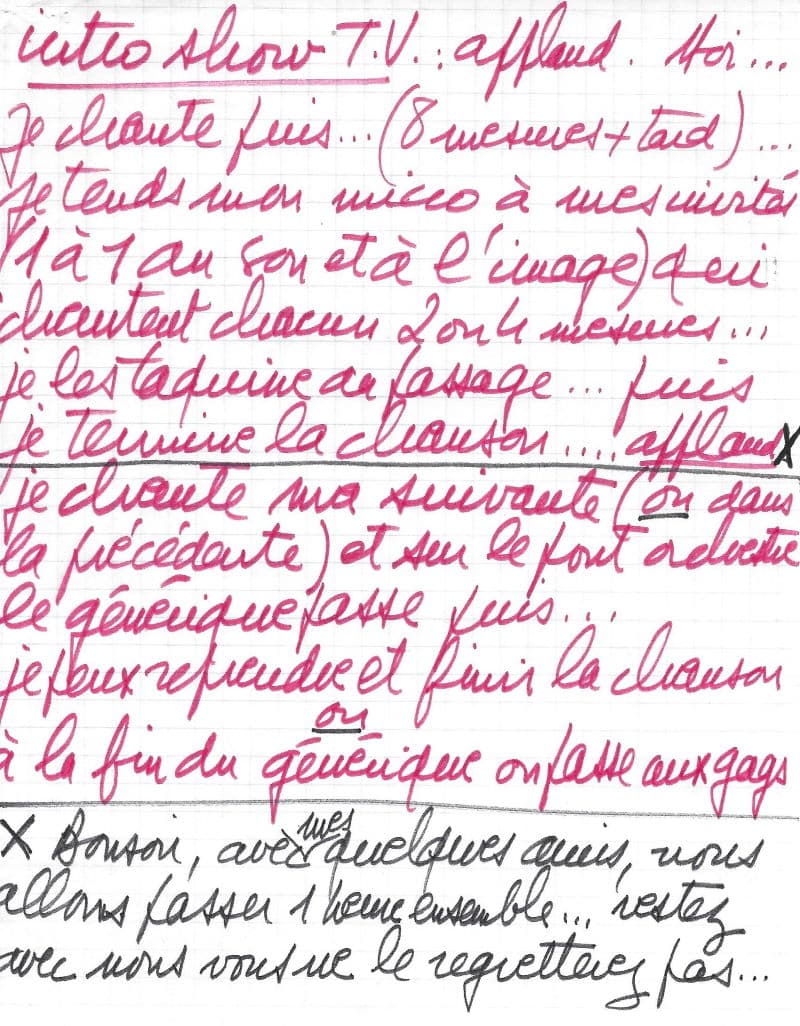 intro show T.V. : applaud. Moi...
je chante puis... (8 mesures + tard) ...
je tends mon micro à mes invités
(1 à 1 au son et à l'image) qui
chantent chacun 2 ou 4 mesures...
je les taquine au passage... puis
je termine la chanson..... applaud X
je chante ma suivante (ou dans
la précédente) et sur le pont orchestre
le générique passe puis...
je peux reprendre et finir la chanson
ou
à la fin du générique on passe aux gags
X Bonsoir, avec mes quelques amis, nous
allons passer 1 heure ensemble... restez
avec nous vous ne le regretterez pas...